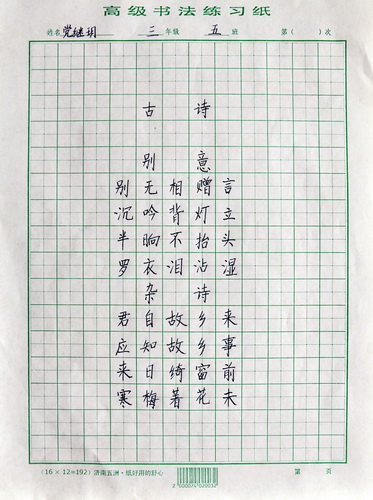 高级书法练习纸
姓名 党继玥 三 年级 五 班 第( )次
古 诗
别 意
别无相赠言
沉吟背灯立
半晌不抬头
罗衣泪沾湿
杂 诗
君自故乡来
应知故乡事
来日绮窗前
寒梅著花未
(16 × 12=192) 济南五洲·纸好用的舒心 第 页
2 000074 020032